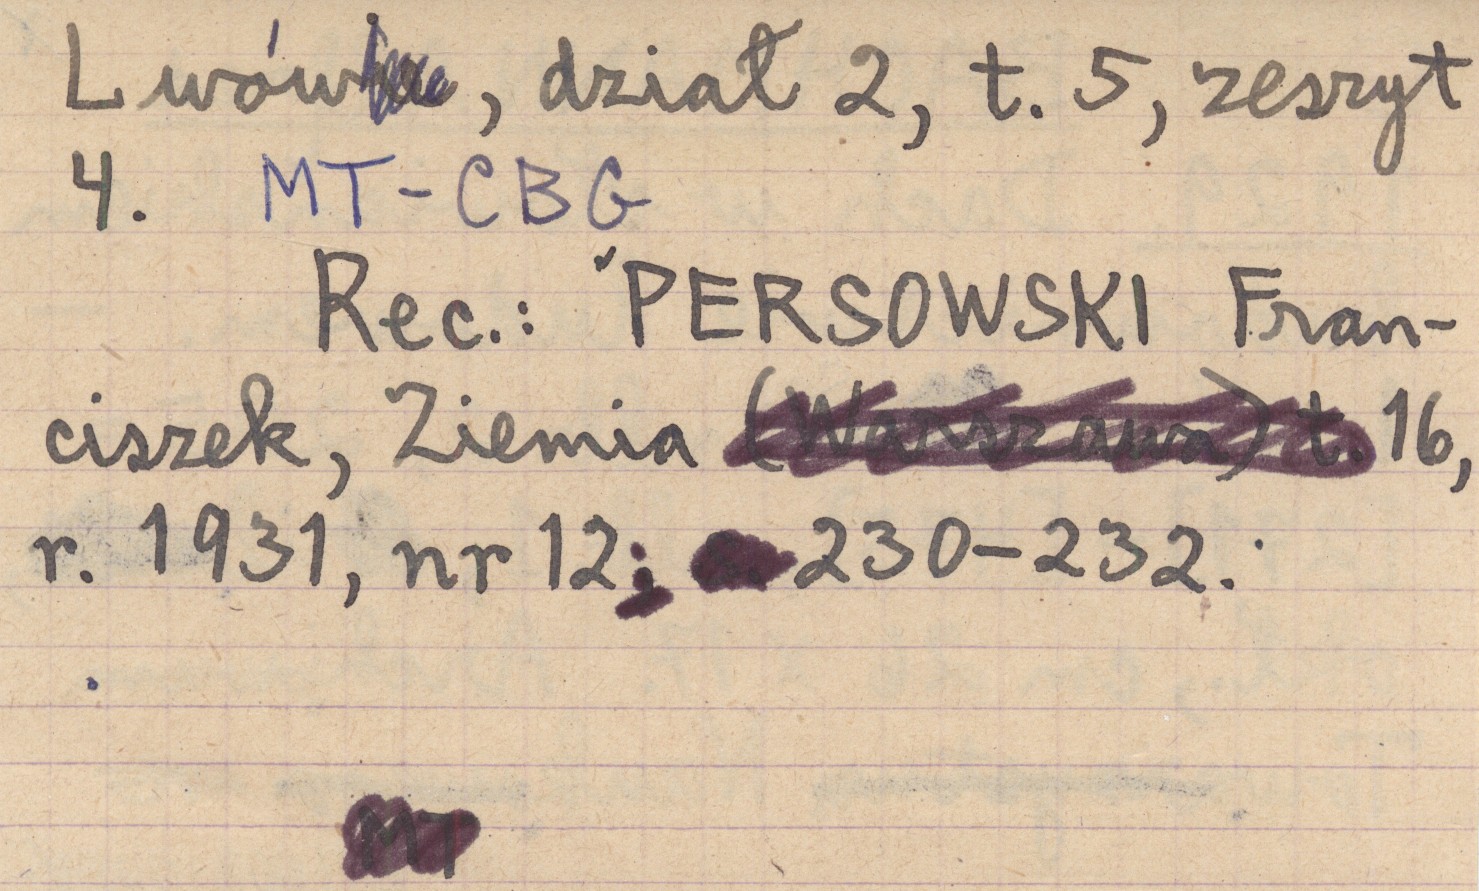 Lwów, dział 2, t. 5, zeszyt
4. MT-CBG
Rec.: PERSOWSKI Fran-
ciszek, Ziemia (Warszawa) t. 16,
r. 1931, nr 12; 230-232.
MT